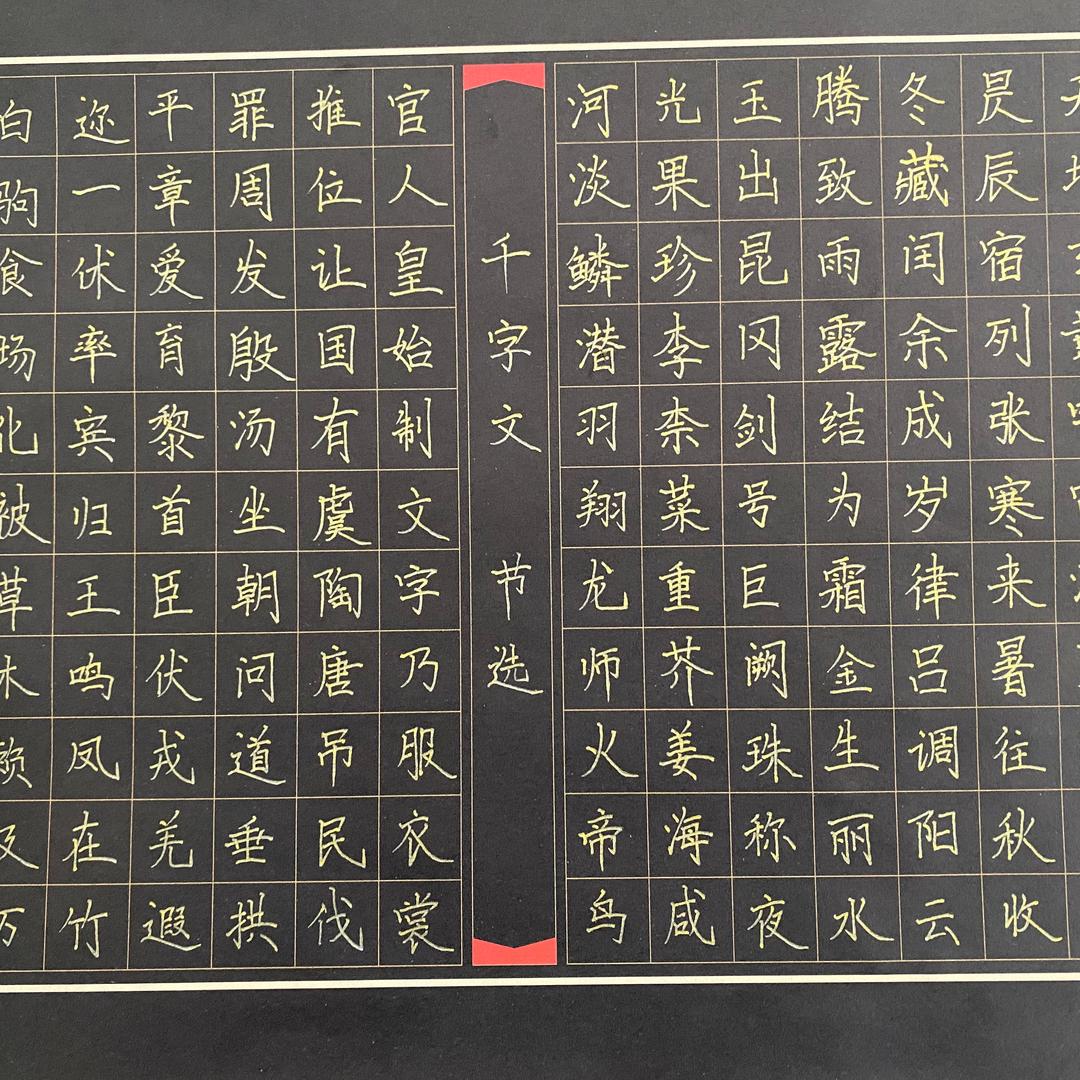 昃辰宿列张寒来暑往秋收
冬藏闰余成岁律吕调阳云
腾致雨露结为霜金生丽水
玉出昆冈剑号巨阙珠称夜
光果珍李柰菜重芥姜海咸
河淡鳞潜羽翔龙师火帝鸟
千字文 节选
官人皇始制文字乃服衣裳
推位让国有虞陶唐吊民伐
罪周发殷汤坐朝问道垂拱
平章爱育黎首臣伏戎羌遐
迩一体率宾归王鸣凤在竹
白驹食场化被草木赖及万